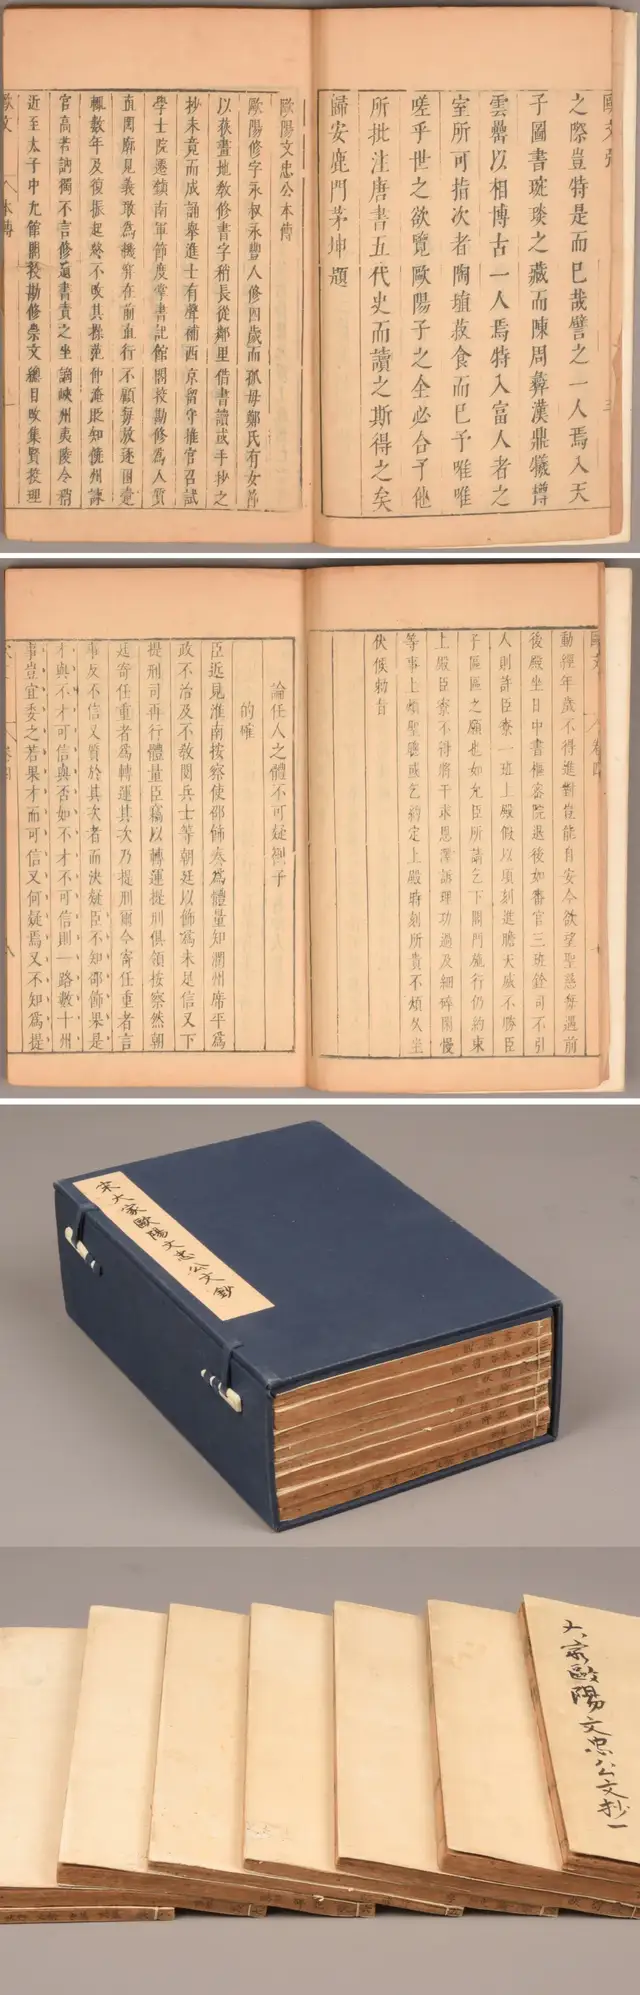 歐文引
之際豈特是而已哉譬之一人焉入天
子圖書琬琰之藏而陳周彝漢鼎犧樽
雲罍以相博古一人焉特入富人者之
室所可指次者陶埴菽食而已予唯唯
嗟乎世之欲覽歐陽子之全必合予他
所批注唐書五代史而讀之斯得之矣
歸安鹿門茅坤題
歐陽文忠公本傳
歐陽修字永叔永豐人修四歲而孤母鄭氏有女節
以荻畫地教修書字稍長從鄰里借書讀或手抄之
抄未竟而成誦舉進士有聲補西京留守推官召試
學士院遷鎮南軍節度掌書記館閣校勘修為人質
直閎廓見義敢為機穽在前直行不顧每放逐困躓
輒數年及復振起終不改其操范仲淹貶知饒州諫
官高若訥獨不言修遺書責之坐謫峽州夷陵令稍
近至太子中允館閣校勘修崇文總目改集賢校理
歐文
本傳
卷四
動經年歲不得進對豈能自安今欲望聖慈每遇前
後殿坐日中書樞密院退後如審官三班銓司不引
人則許臣寮一班上殿假以頃刻進瞻天威不勝臣
子區區之願也如允臣所請乞下閤門施行仍約束
上殿臣寮不得將干求恩澤訴理功過及細碎閑慢
等事上煩聖聽或乞約定上殿時刻所貴不煩久坐
伏候勑旨
論任人之體不可疑劄子
的確
臣近見淮南按察使邵飾奏為體量知潤州席平為
政不治及不教閱兵士等朝廷以飾為未足信又下
提刑司再行體量臣竊以轉運提刑俱領按察然朝
廷寄任重者為轉運其次乃提刑爾今寄任重者言
事反不信又質於其次者而決疑臣不知邵飾果是
才與不才可信與否如不才不可信則一路數十州
事豈宜委之若果才而可信又何疑焉又不知為提
卷四
宋大家歐陽文忠公文鈔
大家歐陽文忠公文抄一